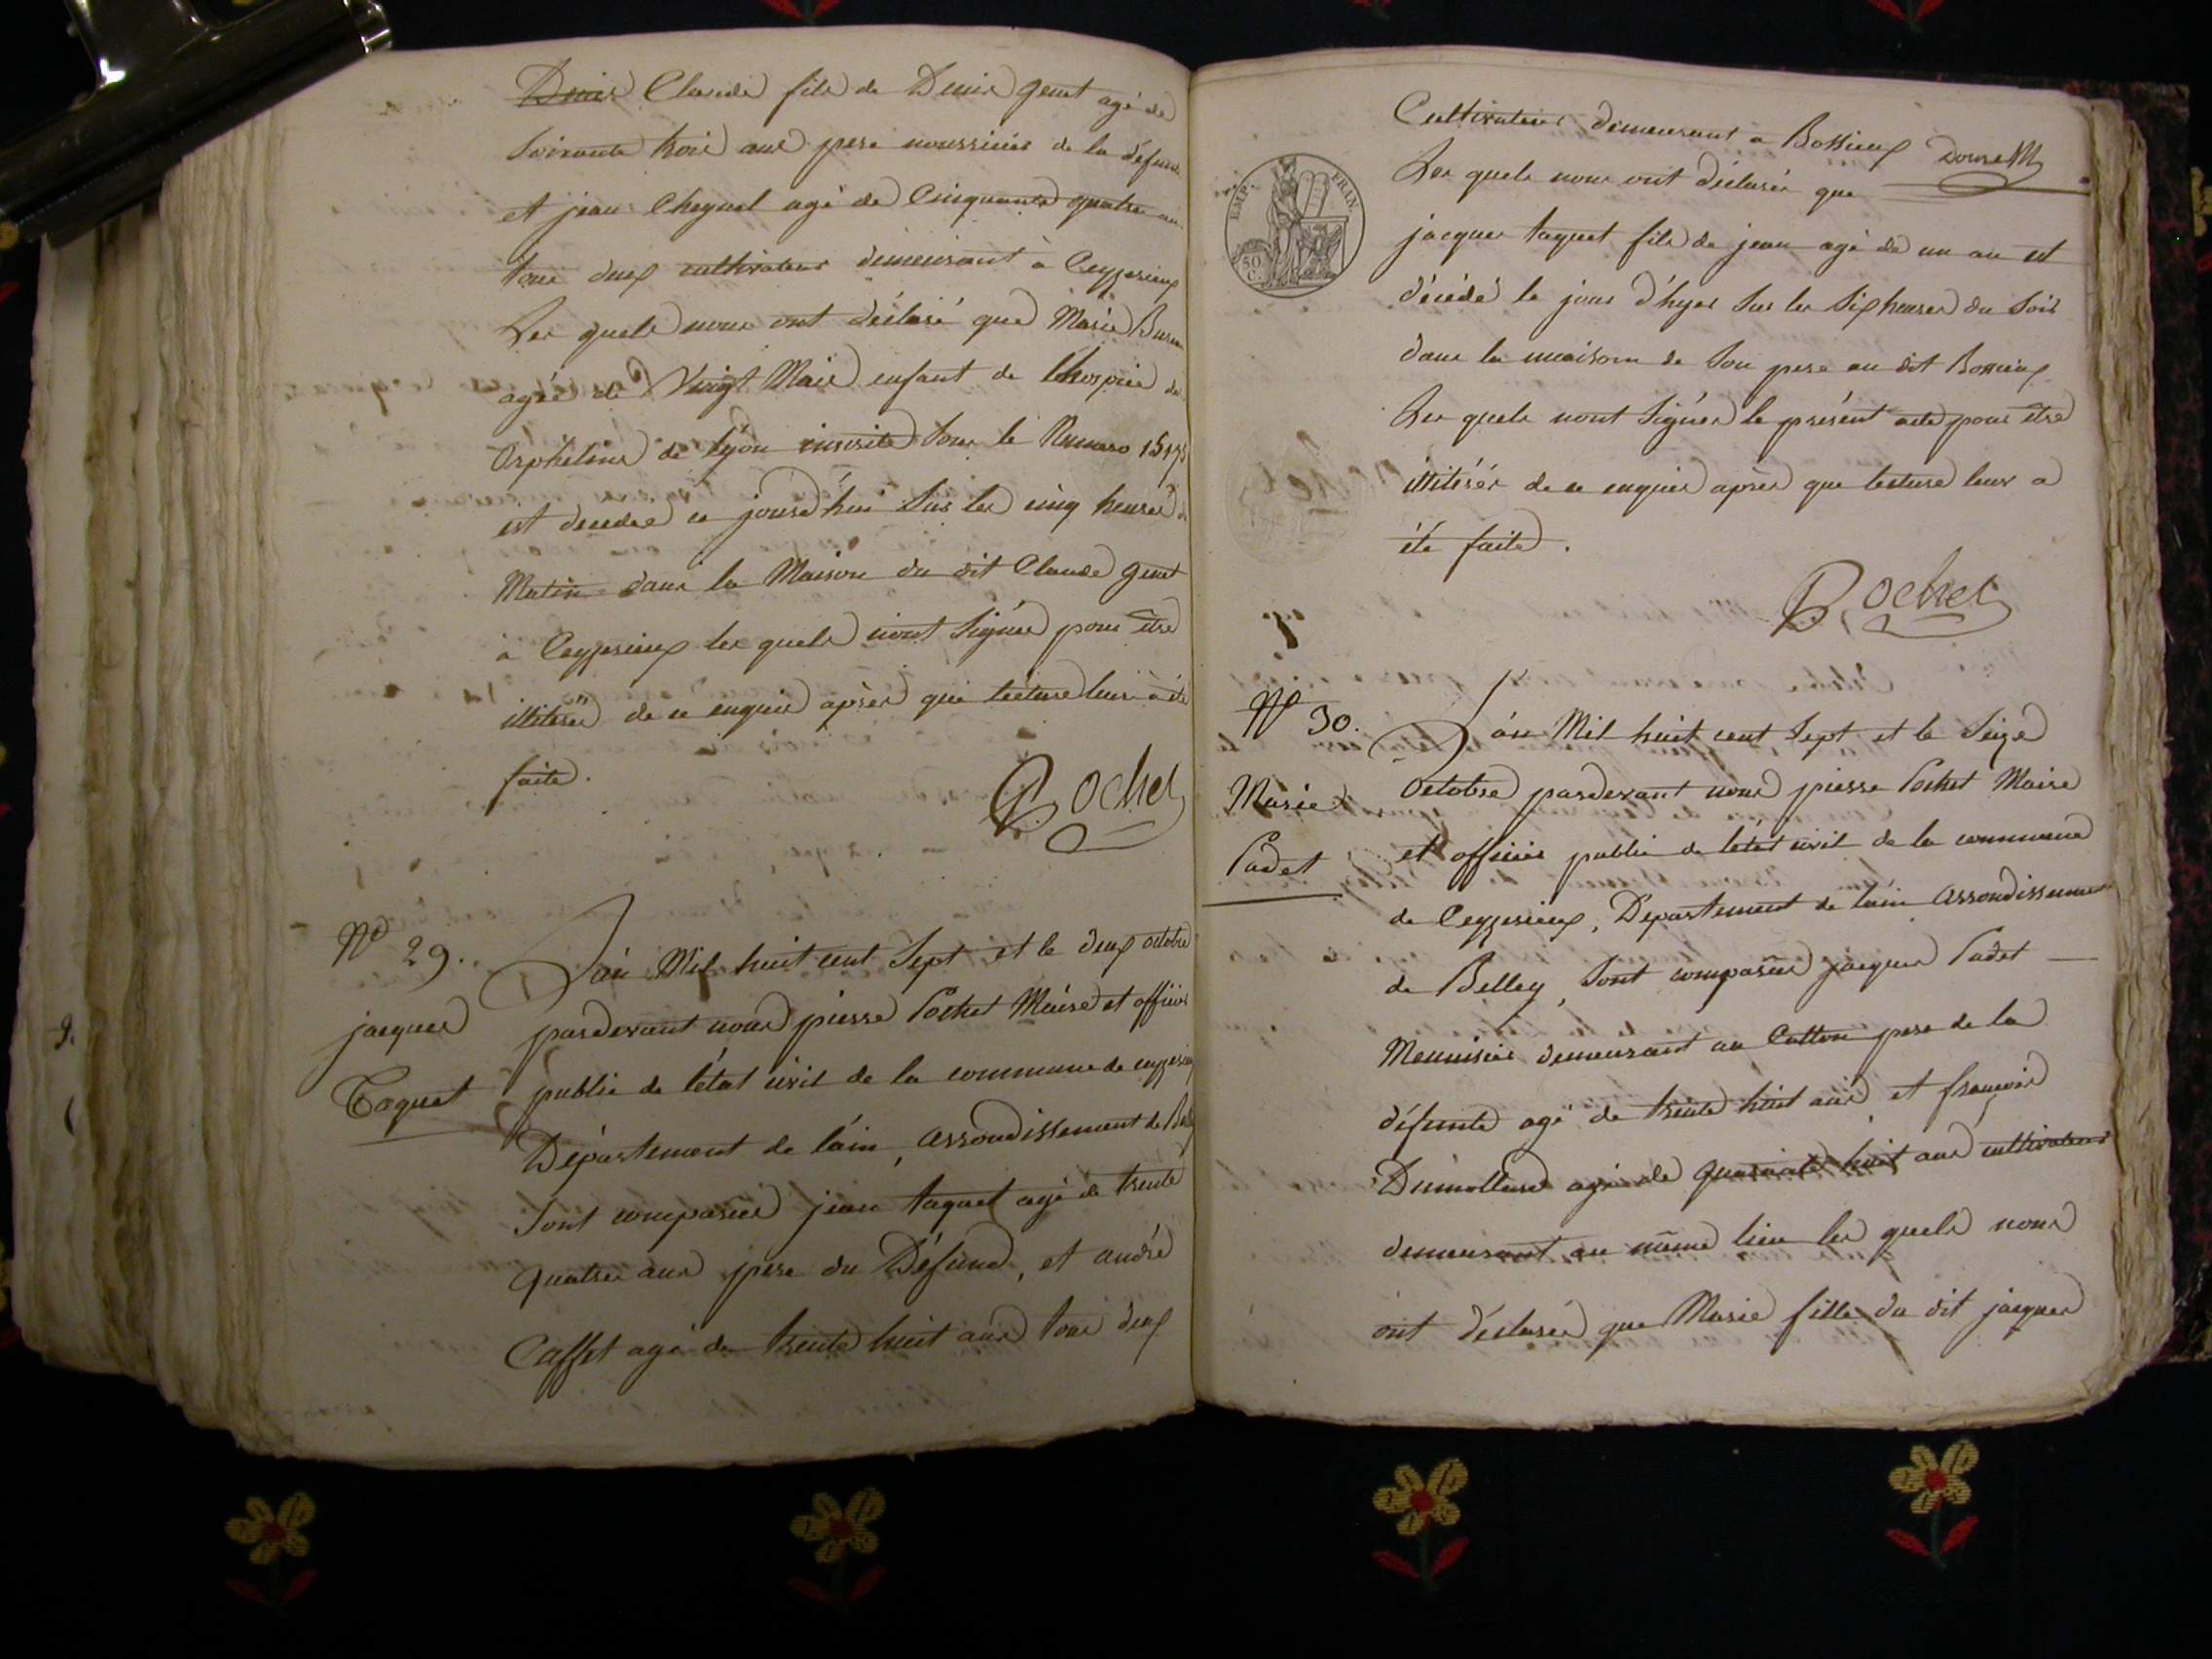 Denis Claude fils de Denis genet agé de
soixante trois ans pere nourricier de la défunte
et jean Cheynel agé de Cinquante quatre ans
tous deux cultivateur demeurant à Ceyzerieux
Les quels nous ont déclaré que Marie
agée de Vingt Mois enfant de lhospice des
Orphelins de lyon inscrite sous le Numero
est decedée ce jourd'hui sur les cinq heures du
Matin dans la Maison du dit Claude genet
à Ceyzerieux les quels n'ont signés pour être
illitérés de ce enquis après que lecture leur à été
faite.
Pochet
N° 29.
jacques
Taquet
L'an Mil huit cent sept et le deux octobre
pardevant nous pierre Pochet Maire et officier
public de létat civil de la commune de ceyzerieux
Département de láin, arrondissement de Belley
sont comparus jean taquet agé de trente
quatre ans pere du Défund, et andré
Caffet agé de trente huit ans tous deux
Cultivateur demeurant a Bossieux
Les quels nous ont déclarés que
jacques taquet fils de jean agé de un an est
décédé le jour d'hyer sur les six heures du soir
dans la maison de son pere au dit Bossieux
Les quels nont signés le présent acte pour être
illitérés de ce enquis après que lecture leur a
été faite.
Pochet
EMP. FRAN.
50 C.
N° 30.
Marie
Padet
L'an Mil huit cent sept et le seize
octobre pardevant nous pierre Pochet Maire
et officier public de létat civil de la commune
de Ceyzerieux, Département de láin arrondissement
de Belley, sont comparus jacques Padet
Meunisier demeurant au Catton pere de la
défunte agé de trente huit ans et francois
Dumollard agé de quarante huit ans cultivateur
demeurant au même lieu les quels nous
ont déclarés que Marie fille du dit jacques